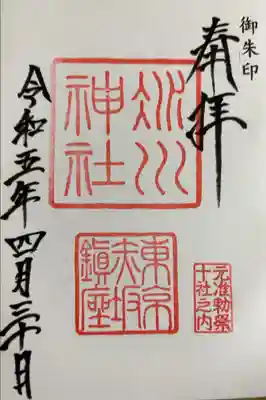 御朱印
奉拝
氷川
神社
元准勅祭
十社之内
東京
赤坂
鎮座
令和五年四月三十日